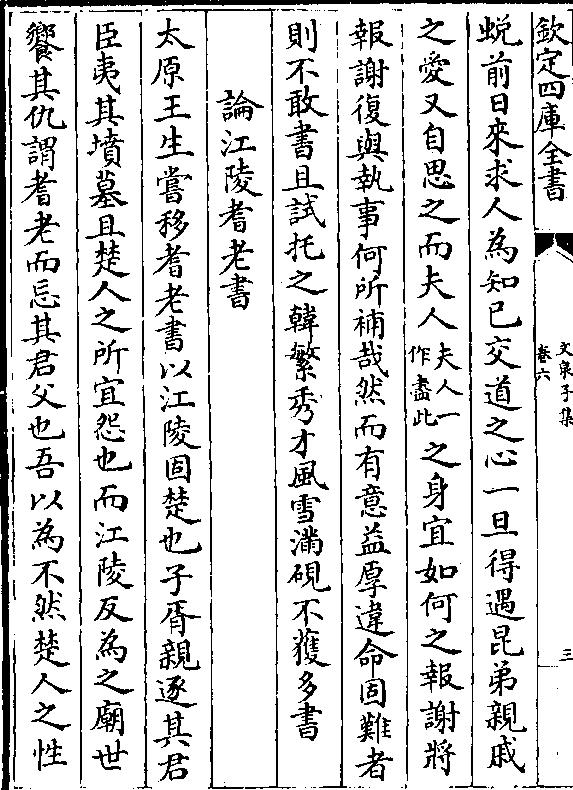 欽定四庫全書
文泉子集
卷六
三
蜕前日來求人為知已交道之心一旦得遇昆弟親戚
之愛又自思之而夫人夫人一作盡此之身宜如何之報謝將
報謝復與執事何所補哉然而有意益厚違命固難者
則不敢書且試托之韓繁秀才風雪滿硯不獲多書
論江陵耆老書
太原王生嘗移耆老書以江陵固楚也子胥親逐其君
臣夷其墳墓且楚人之所宜怨也而江陵反為之廟世
饗其仇謂耆老而忘其君父也吾以為不然楚人之性